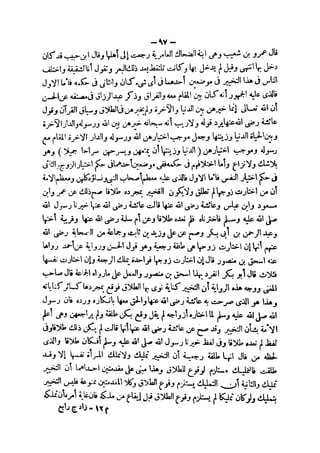 — ٩٧ —
قال عمرو بن شعيب وهى ابنة الضحاك العامرية رجعت إلى أهلها وقال ابن حبيب قد كان
دخل بها انتهى وقيل لم يدخل بها وكانت تلتقط بعد ذلك البعر وتقول أنا الشقية واختلف
الناس فى هذا التخيير فى موضعين أحدهما فى أى شىء كان والثانى فى حكمه فأما الأول
فالذى عليه الجمهور أنه كان بين المقام معه والفراق وذكر عبد الرزاق فى مصنفه عن الحسن
أن الله تعالى إنما خيرهن بين الدنيا والآخرة ولم يخيرهن فى الطلاق وسياق القرآن وقول
عائشة رضى الله عنها يرد قوله ولا ريب أنه سبحانه خيرهن بين الله ورسوله والدار الآخرة
وبين الحياة الدنيا وزينتها وجعل موجب اختيارهن الله ورسوله والدار الآخرة المقام مع
رسوله وموجب اختيارهن ( الدنيا وزينتها أن يمتعهن ويسرحهن سراحا جميلا ) وهو
بلا شك ولا نزاع وأما اختلافهم فى حكمه ففى موضعين أحدهما فى حكم اختيار الزوج والثانى
فى حكم اختيار النفس فأما الأول فالذى عليه معظم أصحاب النبى ونساؤه كلهن ومعظم الأمة
أن من اختارت زوجها لم تطلق ولا يكون التخيير بمجرده طلاقا صح ذلك عن عمر وابن
مسعود وابن عباس وعائشة رضى الله عنها قالت عائشة رضى الله عنها خيرنا رسول الله
صلى الله عليه وسلم فاخترناه فلم نعده طلاقا وعن أم سلمة رضى الله عنها وقريبة أختها
وعبد الرحمن بن أبى بكر وصح عن على وزيد بن ثابت وجماعة من الصحابة رضى الله
عنهم أنها إن اختارت زوجها هى طلقة رجعية وهو قول الحسن ورواية عن أحمد رواها
عنه اسحق بن منصور قال إن اختارت زوجها فواحدة يملك الرجعة وإن اختارت نفسها
فثلاث قال أبو بكر انفرد بهذا اسحق بن منصور والعمل على ما رواه الجماعة قال صاحب
المغنى ووجه هذه الرواية أن التخيير كناية نوى بها الطلاق فوقع بمجردها كسائر كناياته
وهذا هو الذى صرحت به عائشة رضى الله عنها والحق معها بانكاره ورده فان رسول
الله صلى الله عليه وسلم لما اختاره أزواجه لم يقل وقع بكن طلقة ولم يراجعهن وهى أعلم
الأمة بشأن التخيير وقد صح عن عائشة رضى الله عنها أنها قالت لم يكن ذلك طلاقا وفى
لفظ لم نعده طلاقا وفى لفظ خيرنا رسول الله صلى الله عليه وسلم أفكان طلاقا والذى
لحظه من قال انها طلقة رجعية أن التخيير تمليك ولا تملك المرأة نفسها إلا وقد
طلقت فالتمليك مستلزم لوقوع الطلاق وهذا مبنى على مقدمتين احداهما أن التخيير
تمليك والثانية أن التمليك يستلزم وقوع الطلاق وكلا المقدمتين ممنوعة فليس التخيير
بتمليك ولو كان تمليكا لم يستلزم وقوع الطلاق قبل إيقاع من ملكه فان غاية أمره أن تملكه
م ١٢ - زاد ج رابع